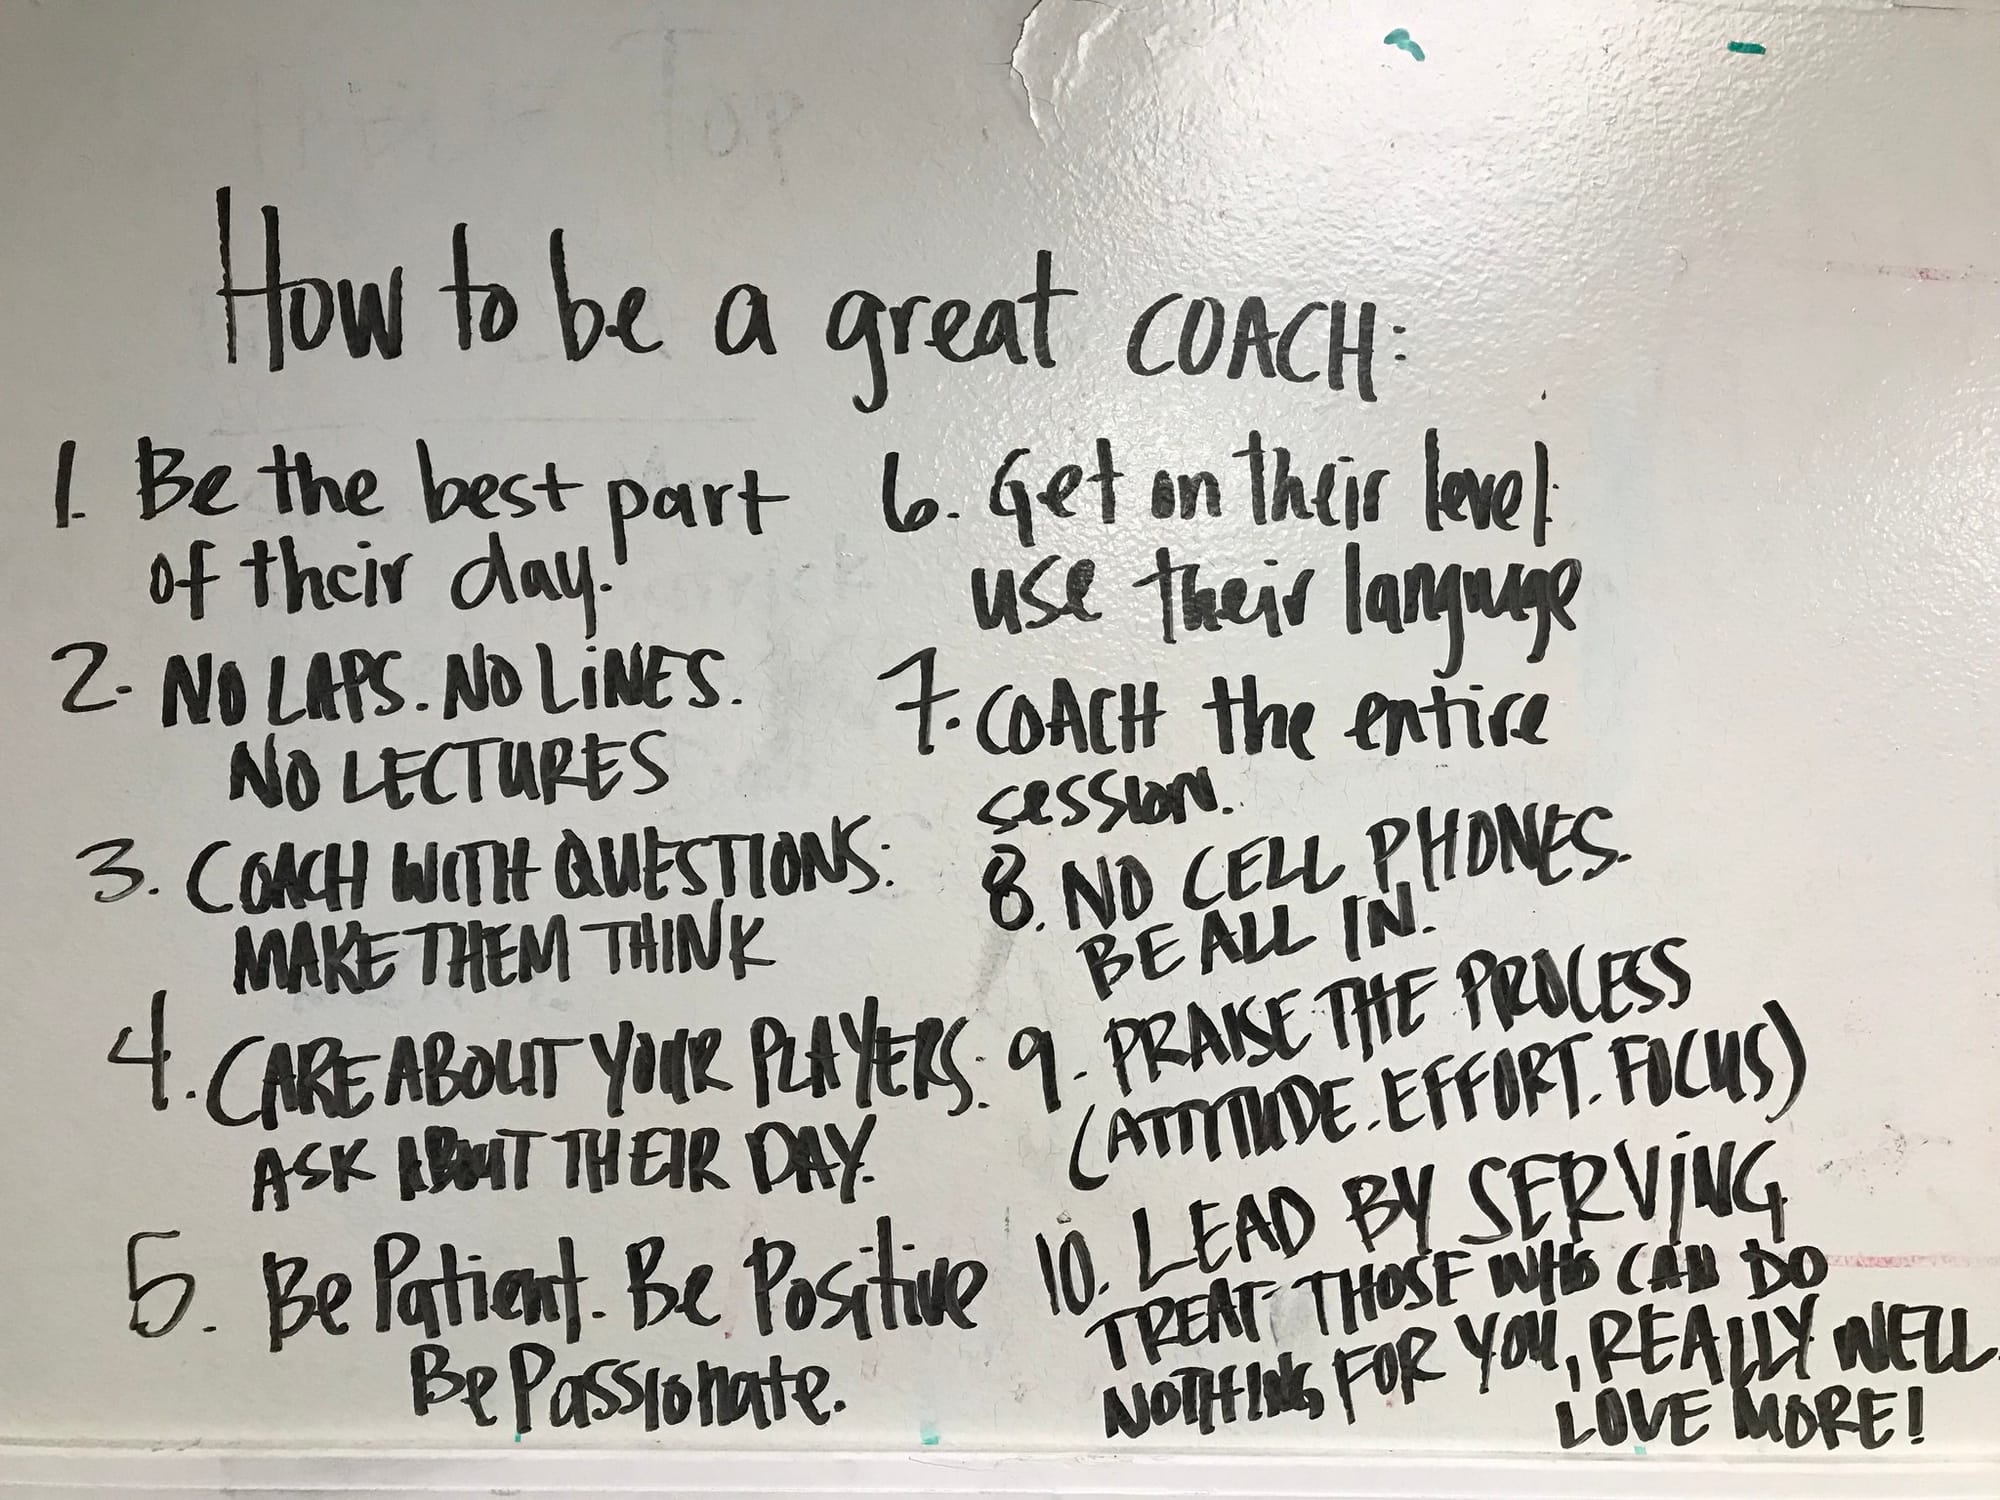 How to be a great COACH:
1. Be the best part
of their day.
2. NO LAPS. NO LINES.
NO LECTURES
3. COACH WITH QUESTIONS:
MAKE THEM THINK
4. CARE ABOUT YOUR PLAYERS:
ASK ABOUT THEIR DAY.
5. Be Patient. Be Positive
Be Passionate.
6. Get on their level:
use their language
7. COACH the entire
session.
8. NO CELL PHONES.
BE ALL IN.
9. PRAISE THE PROCESS
(ATTITUDE. EFFORT. FOCUS)
10. LEAD BY SERVING
TREAT THOSE WHO CAN DO
NOTHING FOR YOU, REALLY WELL
LOVE MORE!